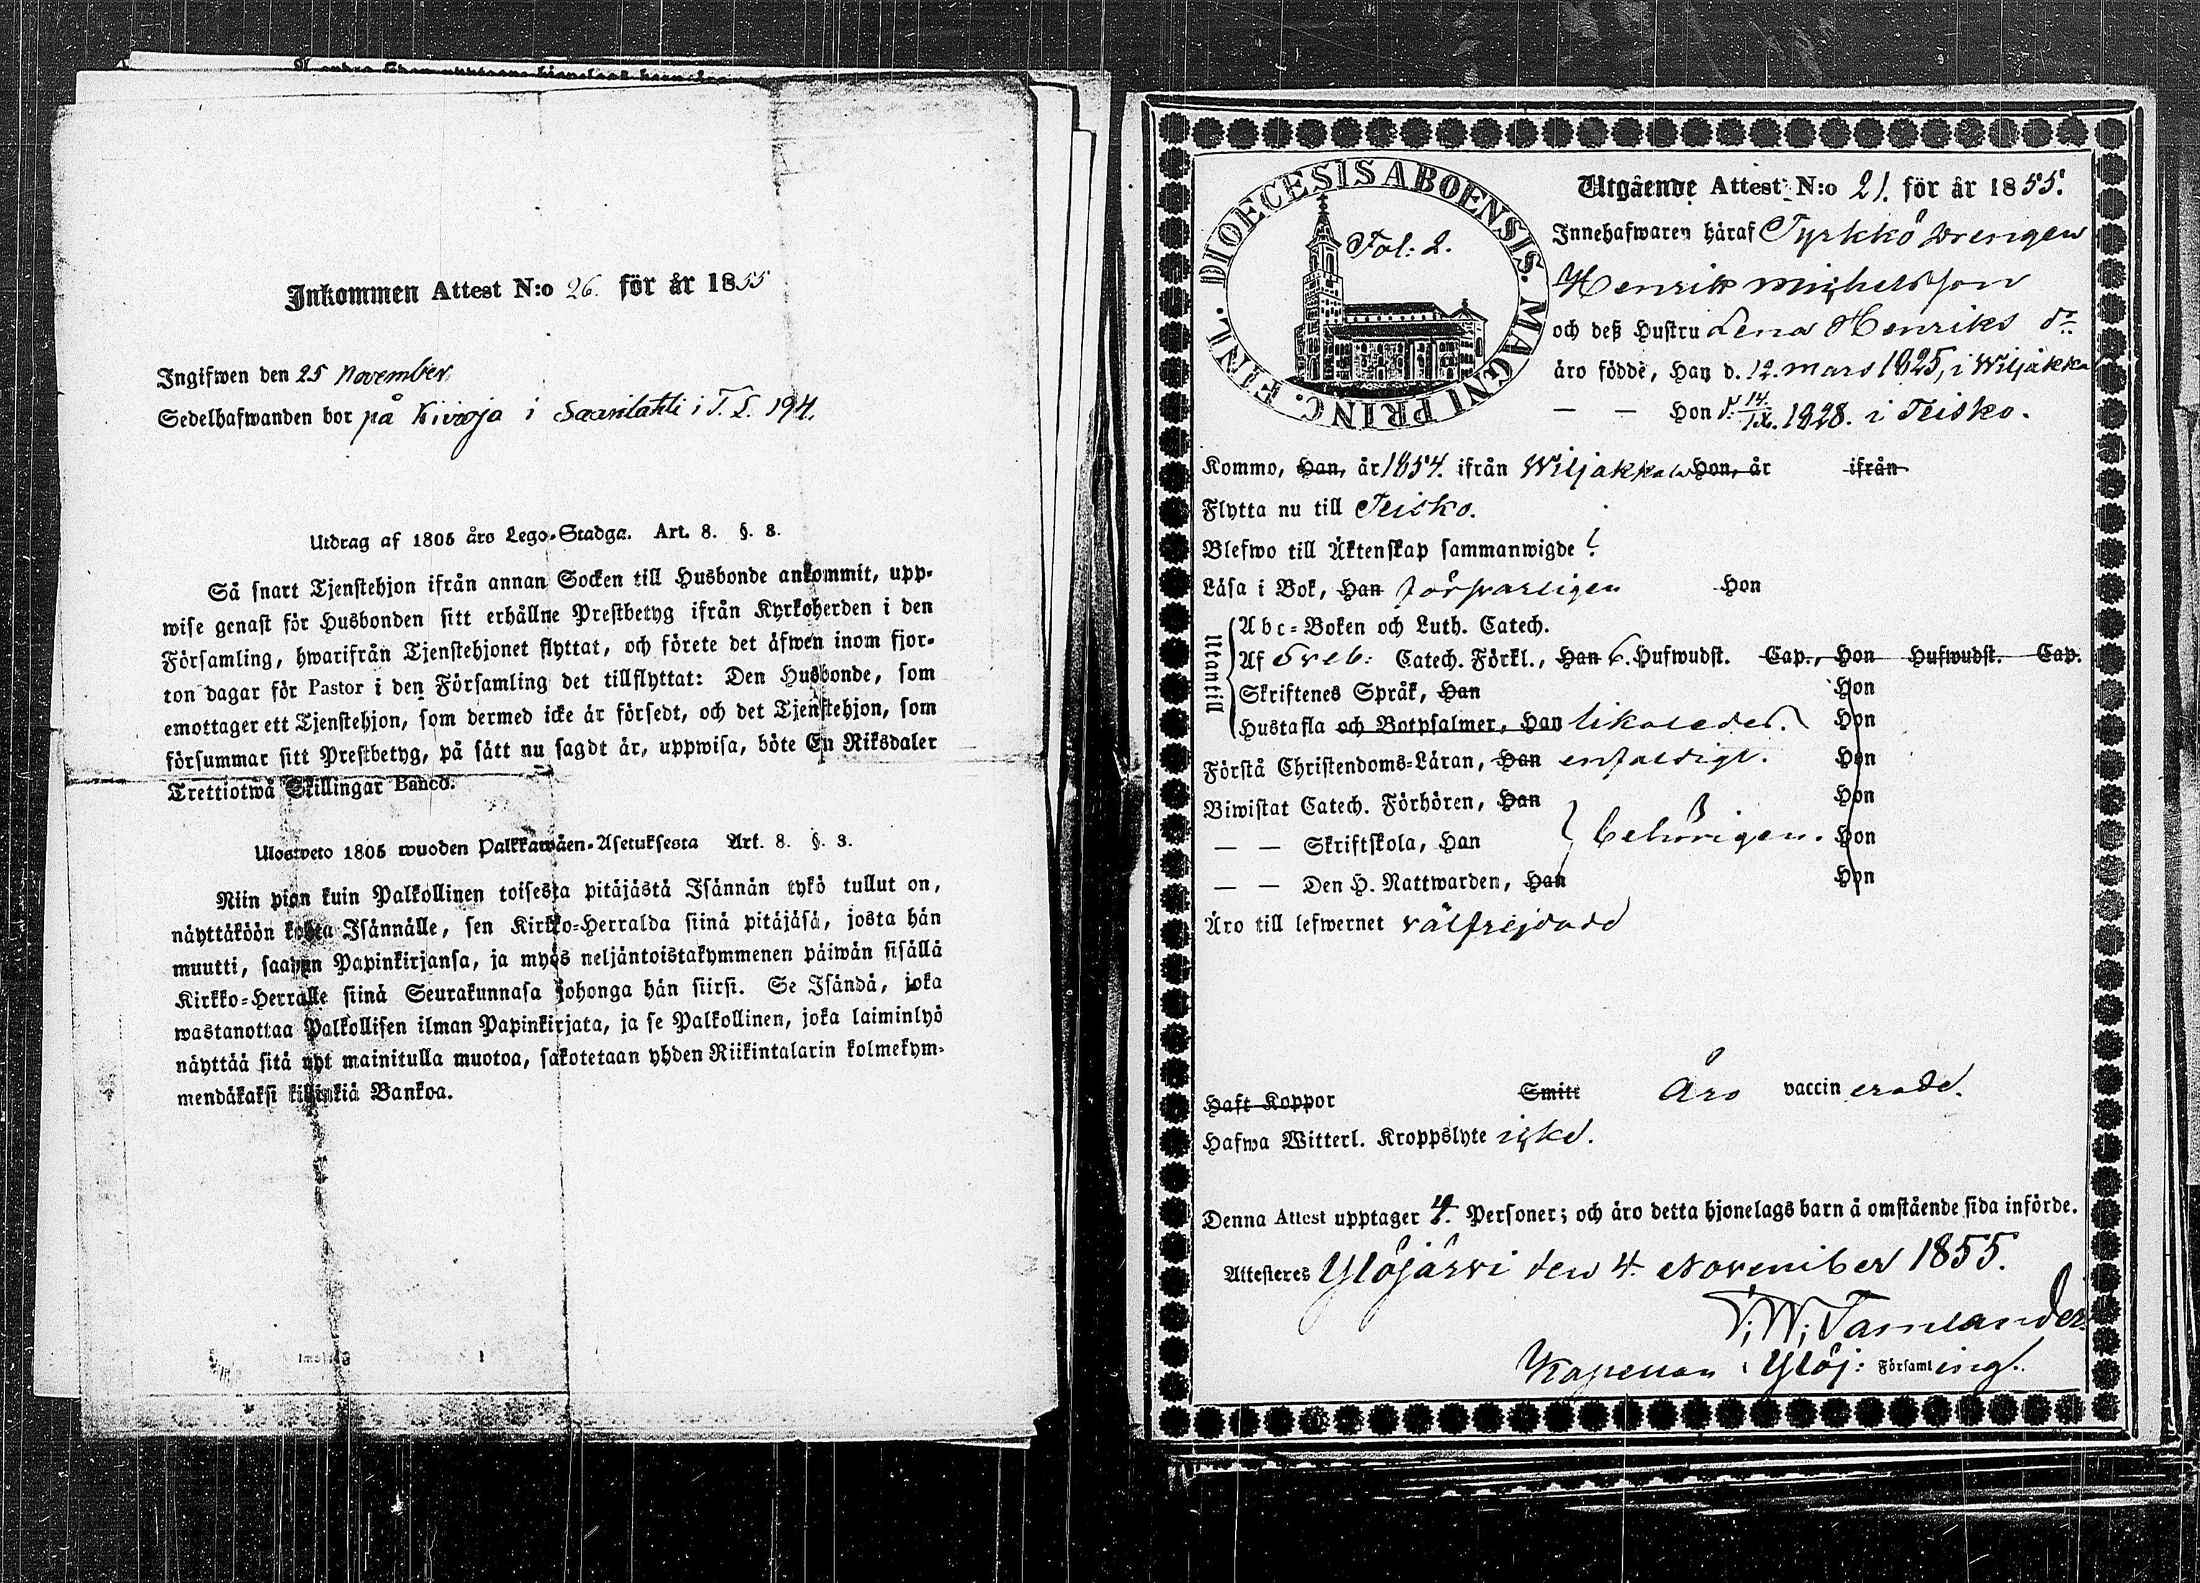 Inkommen Attest N:o 26. för år 1855
Ingifwen den 25 November
Sedelhafwanden bor på Kivioja i Saarilahti i T. L. 194.
Utdrag af 1805 års Lego-Stadga. Art. 8. §. 3.
Så snart Tjenstehjon ifrån annan Socken till Husbonde ankommit, upp-
wise genast för Husbonden sitt erhållne Prestbetyg ifrån Kyrkoherden i den
Församling, hwarifrån Tjenstehjonet flyttat, och förete det äfwen inom fjor-
ton dagar för Pastor i den Församling det tillflyttat: Den Husbonde, som
emottager ett Tjenstehjon, som dermed icke är försedt, och det Tjenstehjon, som
försummar sitt Prestbetyg, på sätt nu sagdt är, uppwisa, böte En Riksdaler
Trettiotwå Skillingar Banco.
Ulosweto 1805 wuoden Palkkawäen-Asetuksesta Art. 8. §. 3.
Niin pian kuin Palkollinen toisesta pitäjästä Isännän tykö tullut on,
näyttäköön kohta Isännälle, sen Kirkko-Herralda siinä pitäjäsä, josta hän
muutti, saapun Papinkirjansa, ja myös neljäntoistakymmenen päiwän sisällä
Kirkko-Herralle siinä Seurakunnasa johonga hän siirsi. Se Isändä, joka
wastanottaa Palkollisen ilman Papinkirjata, ja se Palkollinen, joka laiminlyö
näyttää sitä nyt mainitulla muotoa, sakotetaan yhden Riikintalarin kolmekym-
mendäkaksi killinkiä Bankoa.
DIOECESIS ABOENSIS. MAGNI PRINC. FINL.
Fol: 2.
Utgående Attest N:o 21. för år 1855.
Innehafwaren häraf Tyrkkö Drengen
Henrik Michelsson
och deß Hustru Lena Henriks dr
äro födde, Han d. 12. mars 1825, i Wiljakkala
— — Hon d. 14/IX. 1828. i Teisko.
Kommo, Han, år 1854. ifrån Wiljakkala Hon, år ifrån
Flytta nu till Teisko.
Blefwo till Äktenskap sammanwigde
Läsa i Bok, Han försvarligen Hon
Utantill
Abc-Boken och Luth. Catech.
Af Sveb: Catech. Förkl., Han 6. Hufwudst. Cap., Hon Hufwudst. Cap.
Skriftenes Språk, Han Hon
Hustafla och Botpsalmer, Han likaledes. Hon
Förstå Christendoms-Läran, Han enfaldigt. Hon
Biwistat Catech. Förhören, Han Hon
— — Skriftskola, Han behörigen. Hon
— — Den H. Nattwarden, Han Hon
Äro till lefwernet välfrejdade
Haft Koppor Smitt Äro vaccinerade.
Hafwa Witterl. Kroppslyte icke.
Denna Attest upptager 4. Personer; och äro detta hjonelags barn å omstående sida införde.
Attesteres Ylöjärvi den 4. November 1855.
Tamlander
Kapellan i Ylöj: Församling.